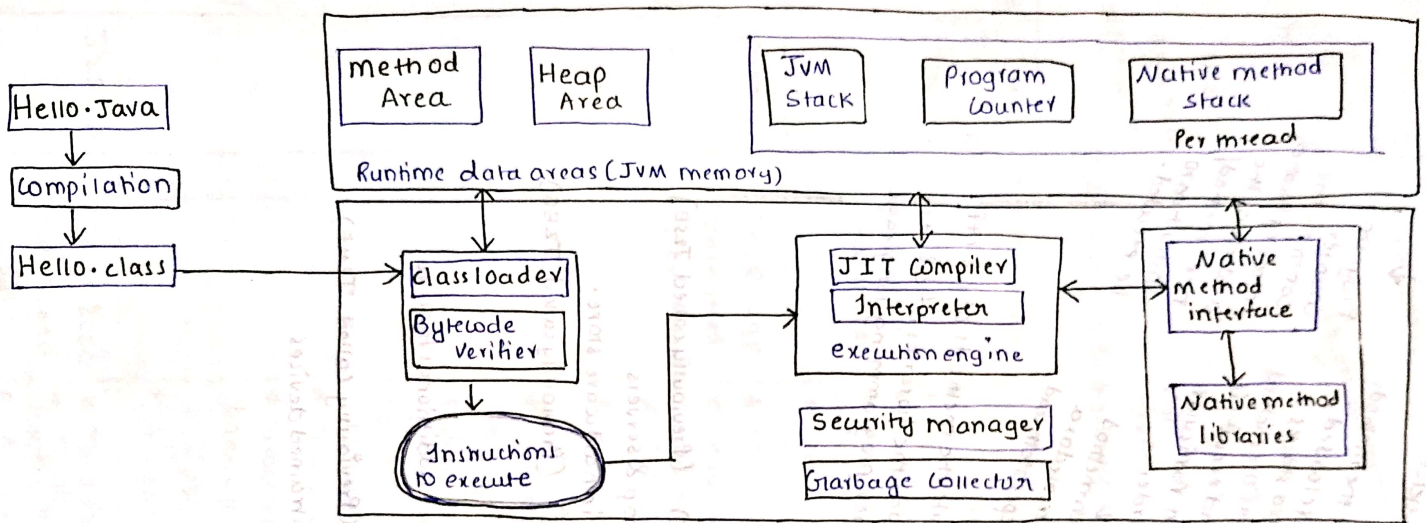 Hello.Java
compilation
Hello.class
method
Area
Heap
Area
JVM
Stack
Program
Counter
Native method
stack
Per thread
Runtime data areas (JVM memory)
classloader
Bytecode
verifier
Instructions
to execute
JIT Compiler
Interpreter
execution engine
Security manager
Garbage Collector
Native
method
interface
Native method
libraries